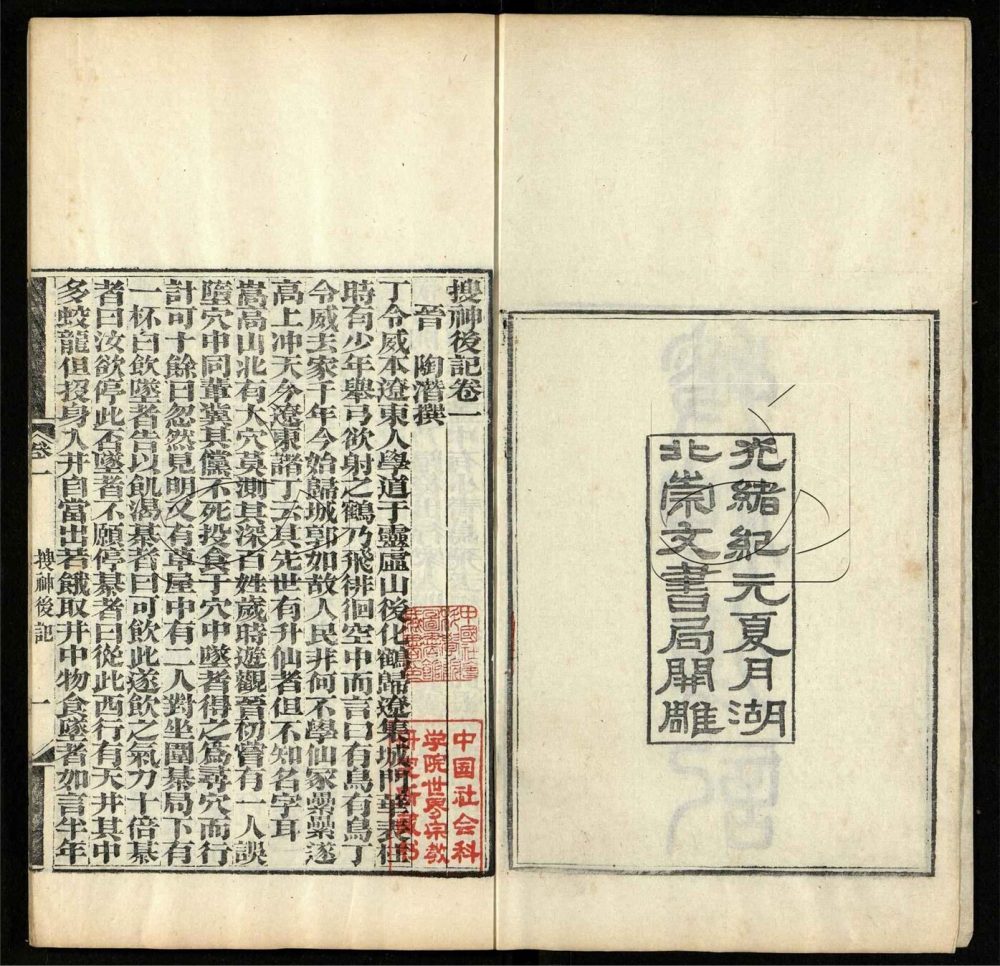 光緒紀元夏月湖
北崇文書局開雕
搜神後記卷一
晉 陶潛撰
丁令威本遼東人學道于靈虛山後化鶴歸遼集城門華表柱
時有少年舉弓欲射之鶴乃飛徘徊空中而言曰有鳥有鳥丁
令威去家千年今始歸城郭如故人民非何不學仙家壘壘遂
高上冲天今遼東諸丁云其先世有升仙者但不知名字耳
嵩高山北有大穴莫測其深百姓歲時遊觀晉初嘗有一人誤
墮穴中同輩冀其儻不死投食于穴中墜者得之爲尋穴而行
計可十餘日忽然見明又有草屋中有二人對坐圍棊局下有
一杯白飲墜者告以飢渴棊者曰可飲此遂飲之氣力十倍棊
者曰汝欲停此否墜者不願停棊者曰從此西行有天井其中
多蛟龍但投身入井自當出若餓取井中物食墜者如言半年
卷一
搜神後記
一
中国社会科
学院世界宗教
研究所藏书